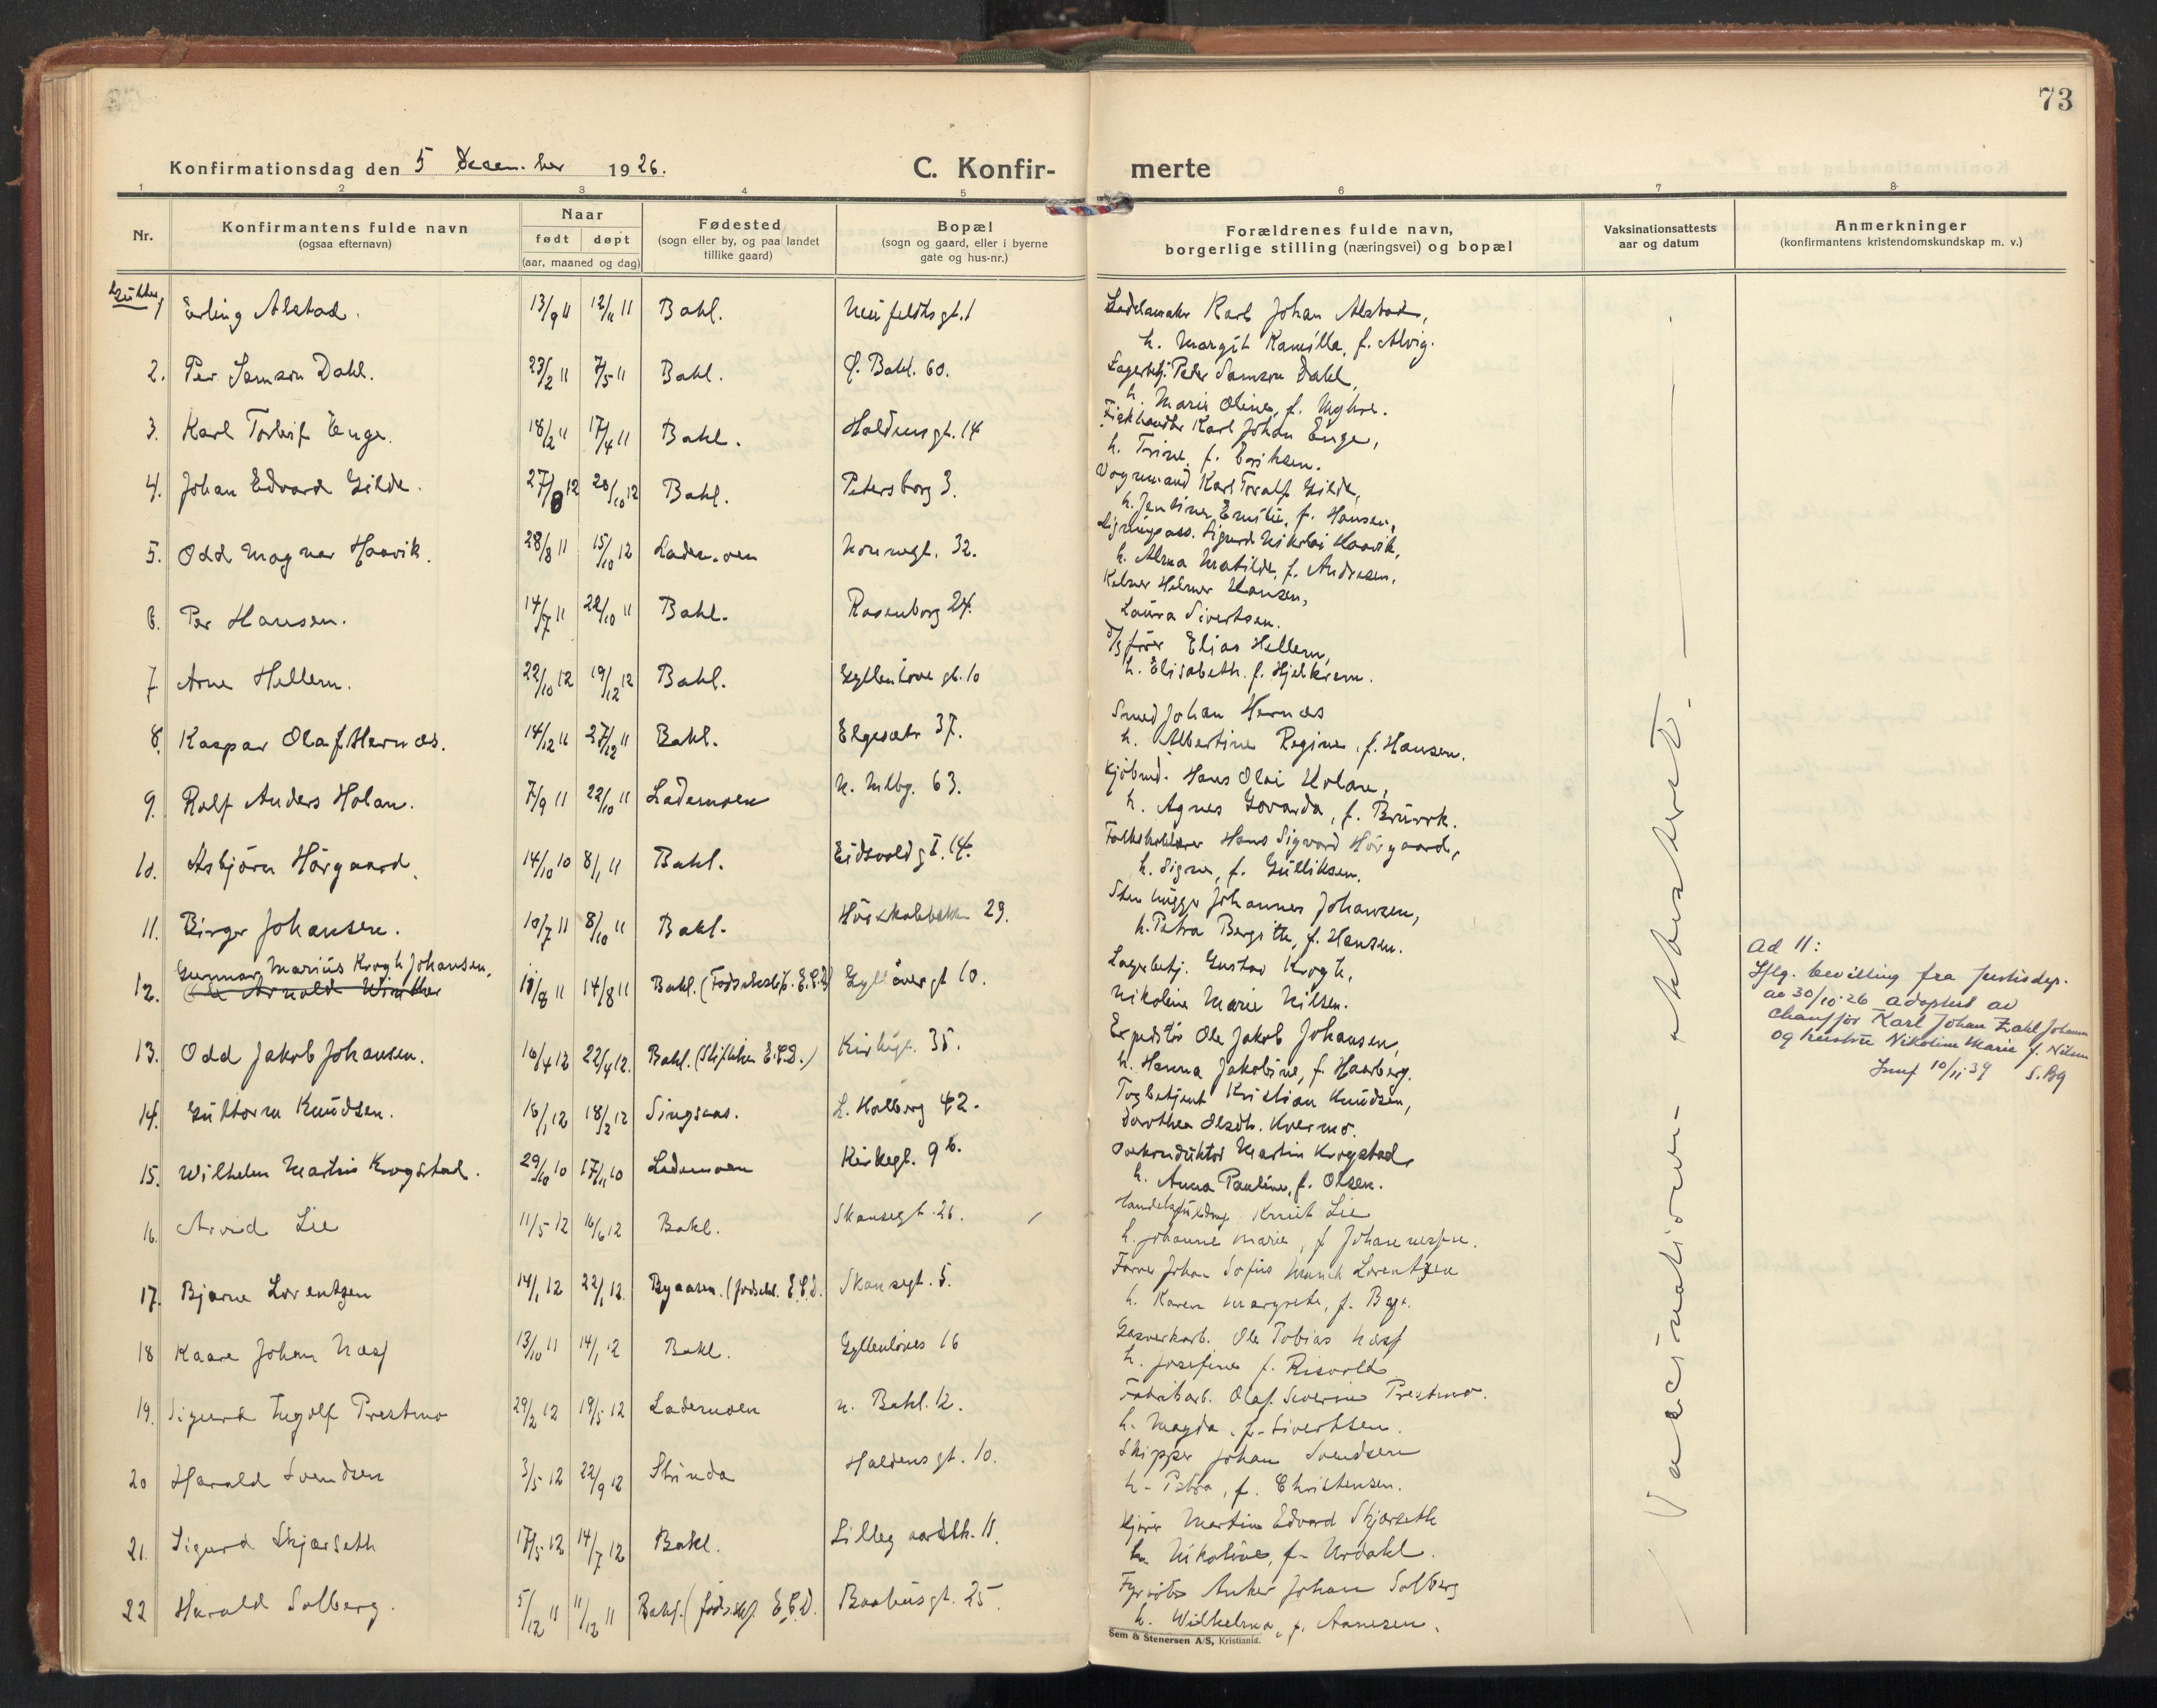 73
Konfirmationsdag den 5 december 1926.
C. Konfir-
merte
1 2 3 4 5 6 7 8
Nr.
Konfirmantens fulde navn
(ogsaa efternavn)
Naar
født døpt
(aar, maaned og dag)
Fødested
(sogn eller by, og paa landet
tillike gaard)
Bopæl
(sogn og gaard, eller i byerne
gate og hus-nr.)
Forældrenes fulde navn,
borgerlige stilling (næringsvei) og bopæl
Vaksinationsattests
aar og datum
Anmerkninger
(konfirmantens kristendomskundskap m. v.)
Gutter
1 Erling Alstad. 13/9 11 12/11 11 Bakl. Neufeldtsgt. 1
Karl Johan Alstad,
h. Margit Kamilla, f. Alvig.
2. Per Samson Dahl. 23/2 11 7/5 11 Bakl. Ø. Bakl. 60.
Lagerbetj. Peder Samson Dahl,
h. Marie Oline, f. Myhre.
3. Karl Torleif Enge. 18/2 11 17/4 11 Bakl. Haldensgt. 14
Fiskhandler Karl Johan Enge,
h. Trine, f. Eriksen.
4. Johan Edvard Gilde. 27/8 12 20/10 12 Bakl. Petersborg 3.
Vognmand Karl Toralf Gilde,
h. Jentine Emilie, f. Hansen,
5. Odd Magnar Haavik. 28/8 11 15/10 12 Lademoen Nonnegt. 32.
Ligningsass. Sigurd Nikolai Haavik,
h. Alma Matilde, f. Andresen.
6. Per Hansen. 14/7 11 22/10 11 Bakl. Rosenborg 24.
Kelner Helmer Hansen,
Laura Sivertsen.
7 Arne Hellem. 22/10 12 19/12 12 Bakl. Gyllenløve gt. 10
D/S fører Elias Hellem,
h. Elisabeth. f. Hjelkrem.
8. Kaspar Olaf Hernæs. 14/12 11 27/12 11 Bakl. Elgesæter 37.
Smed Johan Hernæs
h. Albertine Regine, f. Hansen.
9. Rolf Anders Holan. 7/9 11 22/10 11 Lademoen N. Mlbg. 63.
Kjøbmd. Hans Olai Holan,
h. Agnes Govarda, f. Bruvrk.
10. Asbjørn Hörgaard. 14/10 10 8/1 11 Bakl. Eidsvoldgt. 14.
Folkskolelærer Hans Sigvard Hörgaard,
h. Signe, f. Gulliksen.
11. Birger Johansen. 10/7 11 8/10 11 Bakl. Högskolebakken 29.
Stenhugger Johannes Johansen,
h. Petra Bergitte, f. Hansen.
Gunnar Marius Krogh Johansen,
12. Ole Arnold Winther 10/8 11 14/8 11 Bakl. (Fødselsstift. E.C.D) Gyllløvesgt 10.
Lagerbetj. Gustav Krogh,
Nikoline Marie Nilsen.
13. Odd Jakob Johansen. 16/4 12 22/4 12. Bakl. (Stiftelsen E.C.D.) Kirkegt. 35.
Expeditör Ole Jakob Johansen,
h. Hanna Jakobine, f. Haarberg.
14. Guttorm Knudsen. 16/1 12 18/2 12 Singsaas. L. Halberg 42.
Togbetjent Kristian Knudsen,
Dorothea Olsdtr. Kvernmo.
15. Wilhelm Martin Krogstad. 29/10 10 17/11 10 Lademoen Kirkegt. 9 b.
Overkonduktør Martin Krogstad,
h. Anna Pauline, f. Olsen.
16. Arvid Lie 11/5 12 16/6 12 Bakl. Skansegt. 26.
Knut Lie
h. Johanne Marie, f Johannessen.
17. Bjarne Lorentzen 14/1 12 22/1 12. Byaasen. (fødselst. E.C.D. Skansegt. 5.
Farver Johan Sofus Munch Lorentzen
h. Karen Margrete, f. Bye.
18 Kaare Johan Næss 13/10 11 14/1 12 Bakl. Gyllenløves 16
Gasverkarb. Ole Tobias Næss
h. Josefine f. Risvold
19. Sigurd Ingolf Prestmo 29/2 12 19/5 12 Lademoen N. Bakl. 12.
Fabrikarb. Olaf Severin Prestmo.
h. Magda, f. Sivertsen.
20 Harald Svendsen 3/5 12 22/9 12 Strinda Haldensgt. 10.
Skipper Johan Svendsen
h. Petra, f. Christensen.
21. Sigurd Skjærseth 17/5 12 14/7 12 Bakl. Lillegaardsbk. 11.
Kjører Martin Edvard Skjærseth
h. Nikoline, f. Urdahl.
22 Harald Solberg. 5/12 11 11/12 11 Bakl. (fødselsst E.C.D. Baahusgt. 25.
Fyrbøter Anker Johan Solberg
h. Wilhelma, f. Aanesen.
Vaccinationen attestert.
Ad 11:
Iflg. bevilling fra Justisdep.
av 30/10-26 adoptert av
chauffør Karl Johan Johansen
og hustru Nikoline Marie f. Nilsen
10/11 39 S.Bg
Sem & Stenersen A/S, Kristiania.